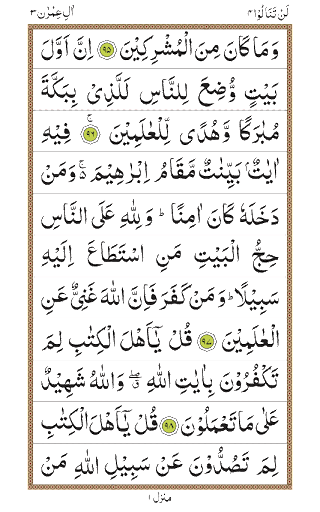 لَنْ تَنَالُوْا ٤ اٰلِ عِمْرٰن ٣
وَمَا كَانَ مِنَ الْمُشْرِكِيْنَ ﴿۹۵﴾ اِنَّ اَوَّلَ
بَيْتٍ وُّضِعَ لِلنَّاسِ لَلَّذِيْ بِبَكَّةَ
مُبٰرَكًا وَّهُدًى لِّلْعٰلَمِيْنَ ﴿۹۶﴾ۚ فِيْهِ
اٰيٰتٌۢ بَيِّنٰتٌ مَّقَامُ اِبْرٰهِيْمَ ۚ۬ وَمَنْ
دَخَلَهٗ كَانَ اٰمِنًا ؕ وَلِلّٰهِ عَلَى النَّاسِ
حِجُّ الْبَيْتِ مَنِ اسْتَطَاعَ اِلَيْهِ
سَبِيْلًا ؕ وَمَنْ كَفَرَ فَاِنَّ اللّٰهَ غَنِيٌّ عَنِ
الْعٰلَمِيْنَ ﴿۹۷﴾ قُلْ يٰۤاَهْلَ الْكِتٰبِ لِمَ
تَكْفُرُوْنَ بِاٰيٰتِ اللّٰهِ ۖۗ وَاللّٰهُ شَهِيْدٌ
عَلٰى مَا تَعْمَلُوْنَ ﴿۹۸﴾ قُلْ يٰۤاَهْلَ الْكِتٰبِ
لِمَ تَصُدُّوْنَ عَنْ سَبِيْلِ اللّٰهِ مَنْ
منزل ١